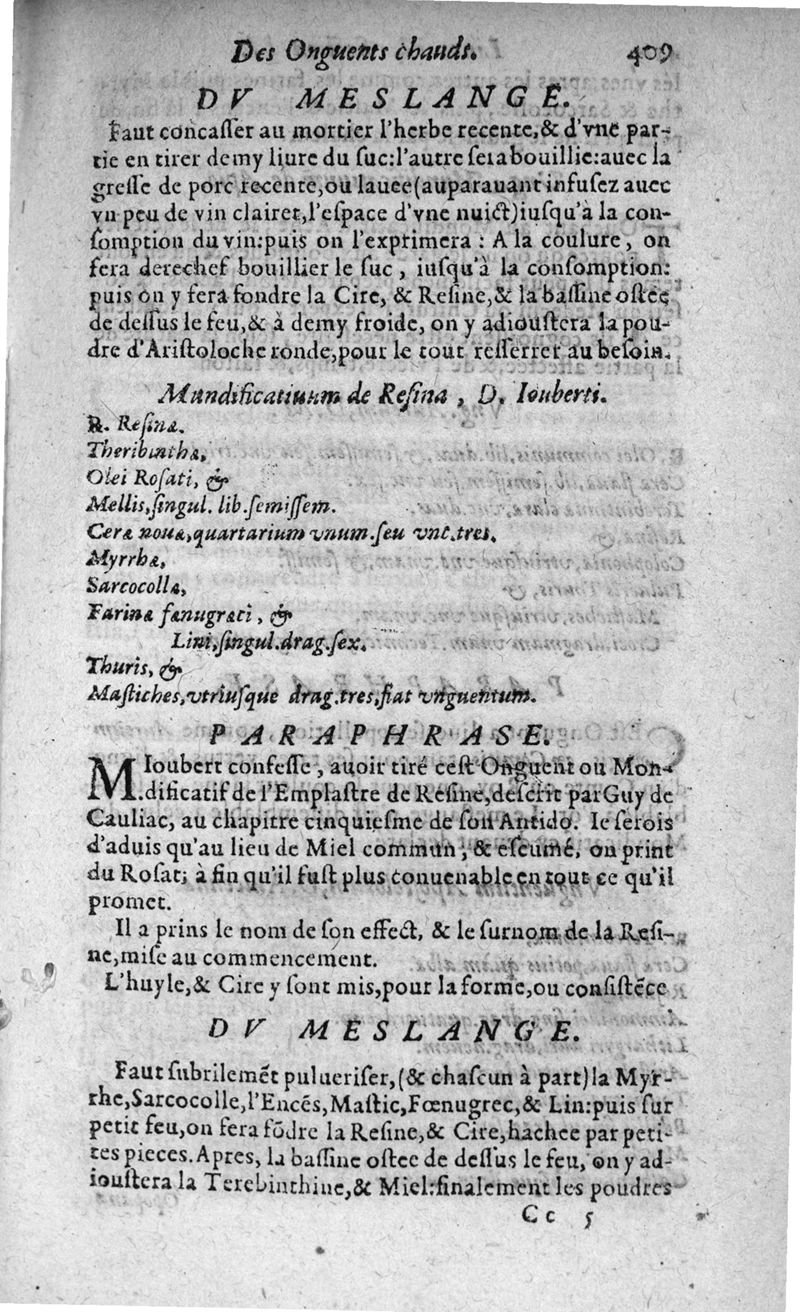 Des Onguents chauds. 409
DV MESLANGE.
Faut concasser au mortier l'herbe recente,& d'vne par-
tie en tirer demy liure du suc:l'autre sera bouillie:auec la
gresse de porc recente,ou lauee(auparauant infusez auec
vn peu de vin clairet,l'espace d'vne nuict)iusqu'à la con-
somption du vin:puis on l'exprimera : A la coulure, on
fera derechef bouillier le suc, iusqu'à la consomption:
puis on y fera fondre la Cire, & Resine,& la bassine ostee
de dessus le feu,& à demy froide, on y adioustera la pou-
dre d'Aristoloche ronde,pour le tout resserrer au besoin.
Mundificatiuum de Resina, D. Iouberti.
℞. Resinæ.
Theribinthæ,
Olei Rosati, &
Mellis,singul. lib.semissem.
Ceræ nouæ,quartarium vnum.seu vnc.tres.
Myrrhæ,
Sarcocollæ,
Farinæ fænugræci, &
Lini,singul.drag.sex.
Thuris, &
Mastiches,vtriusque drag.tres,fiat vnguentum.
PARAPHRASE.
M Ioubert confesse, auoir tiré cest Onguent ou Mon-
.dificatif de l'Emplastre de Resine,descrit par Guy de
Cauliac, au chapitre cinquiesme de son Antido. Ie serois
d'aduis qu'au lieu de Miel commun, & escumé, on print
du Rosat; à fin qu'il fust plus conuenable en tout ce qu'il
promet.
Il a prins le nom de son effect, & le surnom de la Resi-
ne,mise au commencement.
L'huyle,& Cire y sont mis,pour la forme,ou consistẽce
DV MESLANGE.
Faut subtilemẽt pulueriser,(& chascun à part)la Myr-
rhe,Sarcocolle,l'Encẽs,Mastic,Fœnugrec,& Lin:puis sur
petit feu,on fera fõdre la Resine,& Cire,hachee par peti-
tes pieces.Apres, la bassine ostee de dessus le feu, on y ad-
ioustera la Terebinthine,& Miel:finalement les poudres
Cc 5